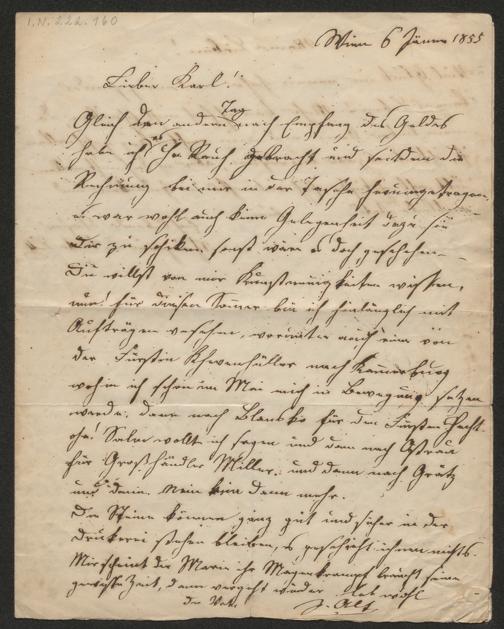 I.N. 222.160
Wien 6 Jänner 1855
Lieber Karl!
Gleich den andern Tag nach Empfang des Geldes
habe ich es Rauch gebracht und seitdem die
Rechnung bei mir in der Tasche herumgetragen
es war wohl auch keine Gelegenheit dazu sie
Dir zu schiken sonst wäre es doch geschehen
Du willst von mir Kunstneuigkeiten wissen,
nun! für diesen Sommer bin ich hinlänglich mit
Aufträgen versehen, worunter auch eine von
der Fürstin Khevenhüller nach Kammerburg
wohin ich schon im Mai mich in Bewegung setzen
werde, dann nach Blansko für den Fürsten
oha! Salm wollt ich sagen und dann nach Ostrau
für Großhändler Miller, und dann nach Grätz
und dann. Nein kein dann mehr.
Die Steine können ganz gut und sicher in der
Drukerei stehen bleiben, es geschieht ihnen nichts.
Mir scheint der Marie ihr Magenkrampf braucht seine
gewisse Zeit, dann vergeht wieder. Leb wohl
J. Alt